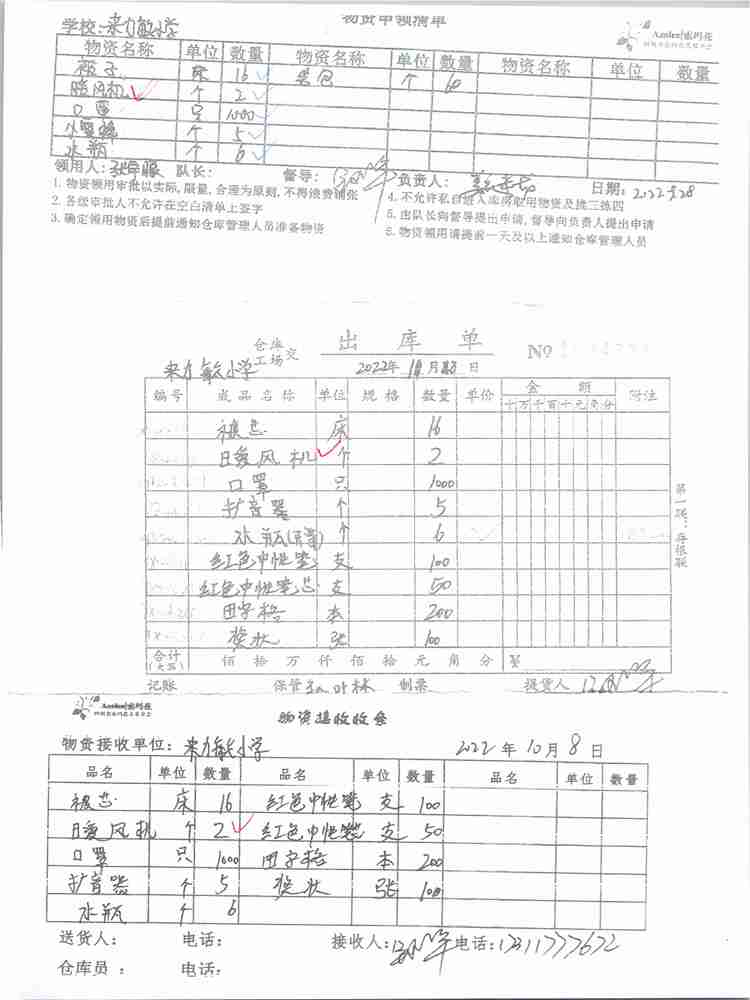 物资申领清单
学校:来力敏小学
Aonle|索玛花
物资名称 单位 数量 物资名称 单位 数量 物资名称 单位 数量
被子 床 16 书包 个 60
暖风机 个 2
口罩 只 1000
小蜜蜂 个 5
水瓶 个 6
领用人: 队长: 督导: 负责人: 日期:2022
1. 物资领用审批以实际,限量,合理为原则,不得浪费铺张
2. 各级审批人不允许在空白清单上签字
3. 确定领用物资后提前通知仓库管理人员准备物资
4. 不允许私自进入库房取用物资及挑三拣四
5. 由队长向督导提出申请,督导向负责人提出申请
6. 物资领用请提前一天及以上通知仓库管理人员
出库单
仓库
工场交
No
来力敏小学 2022年 10月 日
编号 成品名称 单位 规格 数量 单价 金额 附注
十万千百十元角分
被芯 床 16
暖风机 个 2
口罩 只 1000
扩音器 个 5
水瓶 个 6
红色中性笔 支 100
红色中性笔芯 支 50
田字格 本 200
奖状 张 100
第一联:存根联
合计(大写) 佰拾万仟佰拾元角分 ¥
记账 保管 制票 提货人
Aonle|索玛花
物资接收收条
物资接收单位:来力敏小学 2022年10月8日
品名 单位 数量 品名 单位 数量 品名 单位 数量
被芯 床 16 红色中性笔 支 100
暖风机 个 2 红色中性笔芯 支 50
口罩 只 1000 田字格 本 200
扩音器 个 5 奖状 张 100
水瓶 个 6
送货人: 电话: 接收人: 电话:
仓库员: 电话: